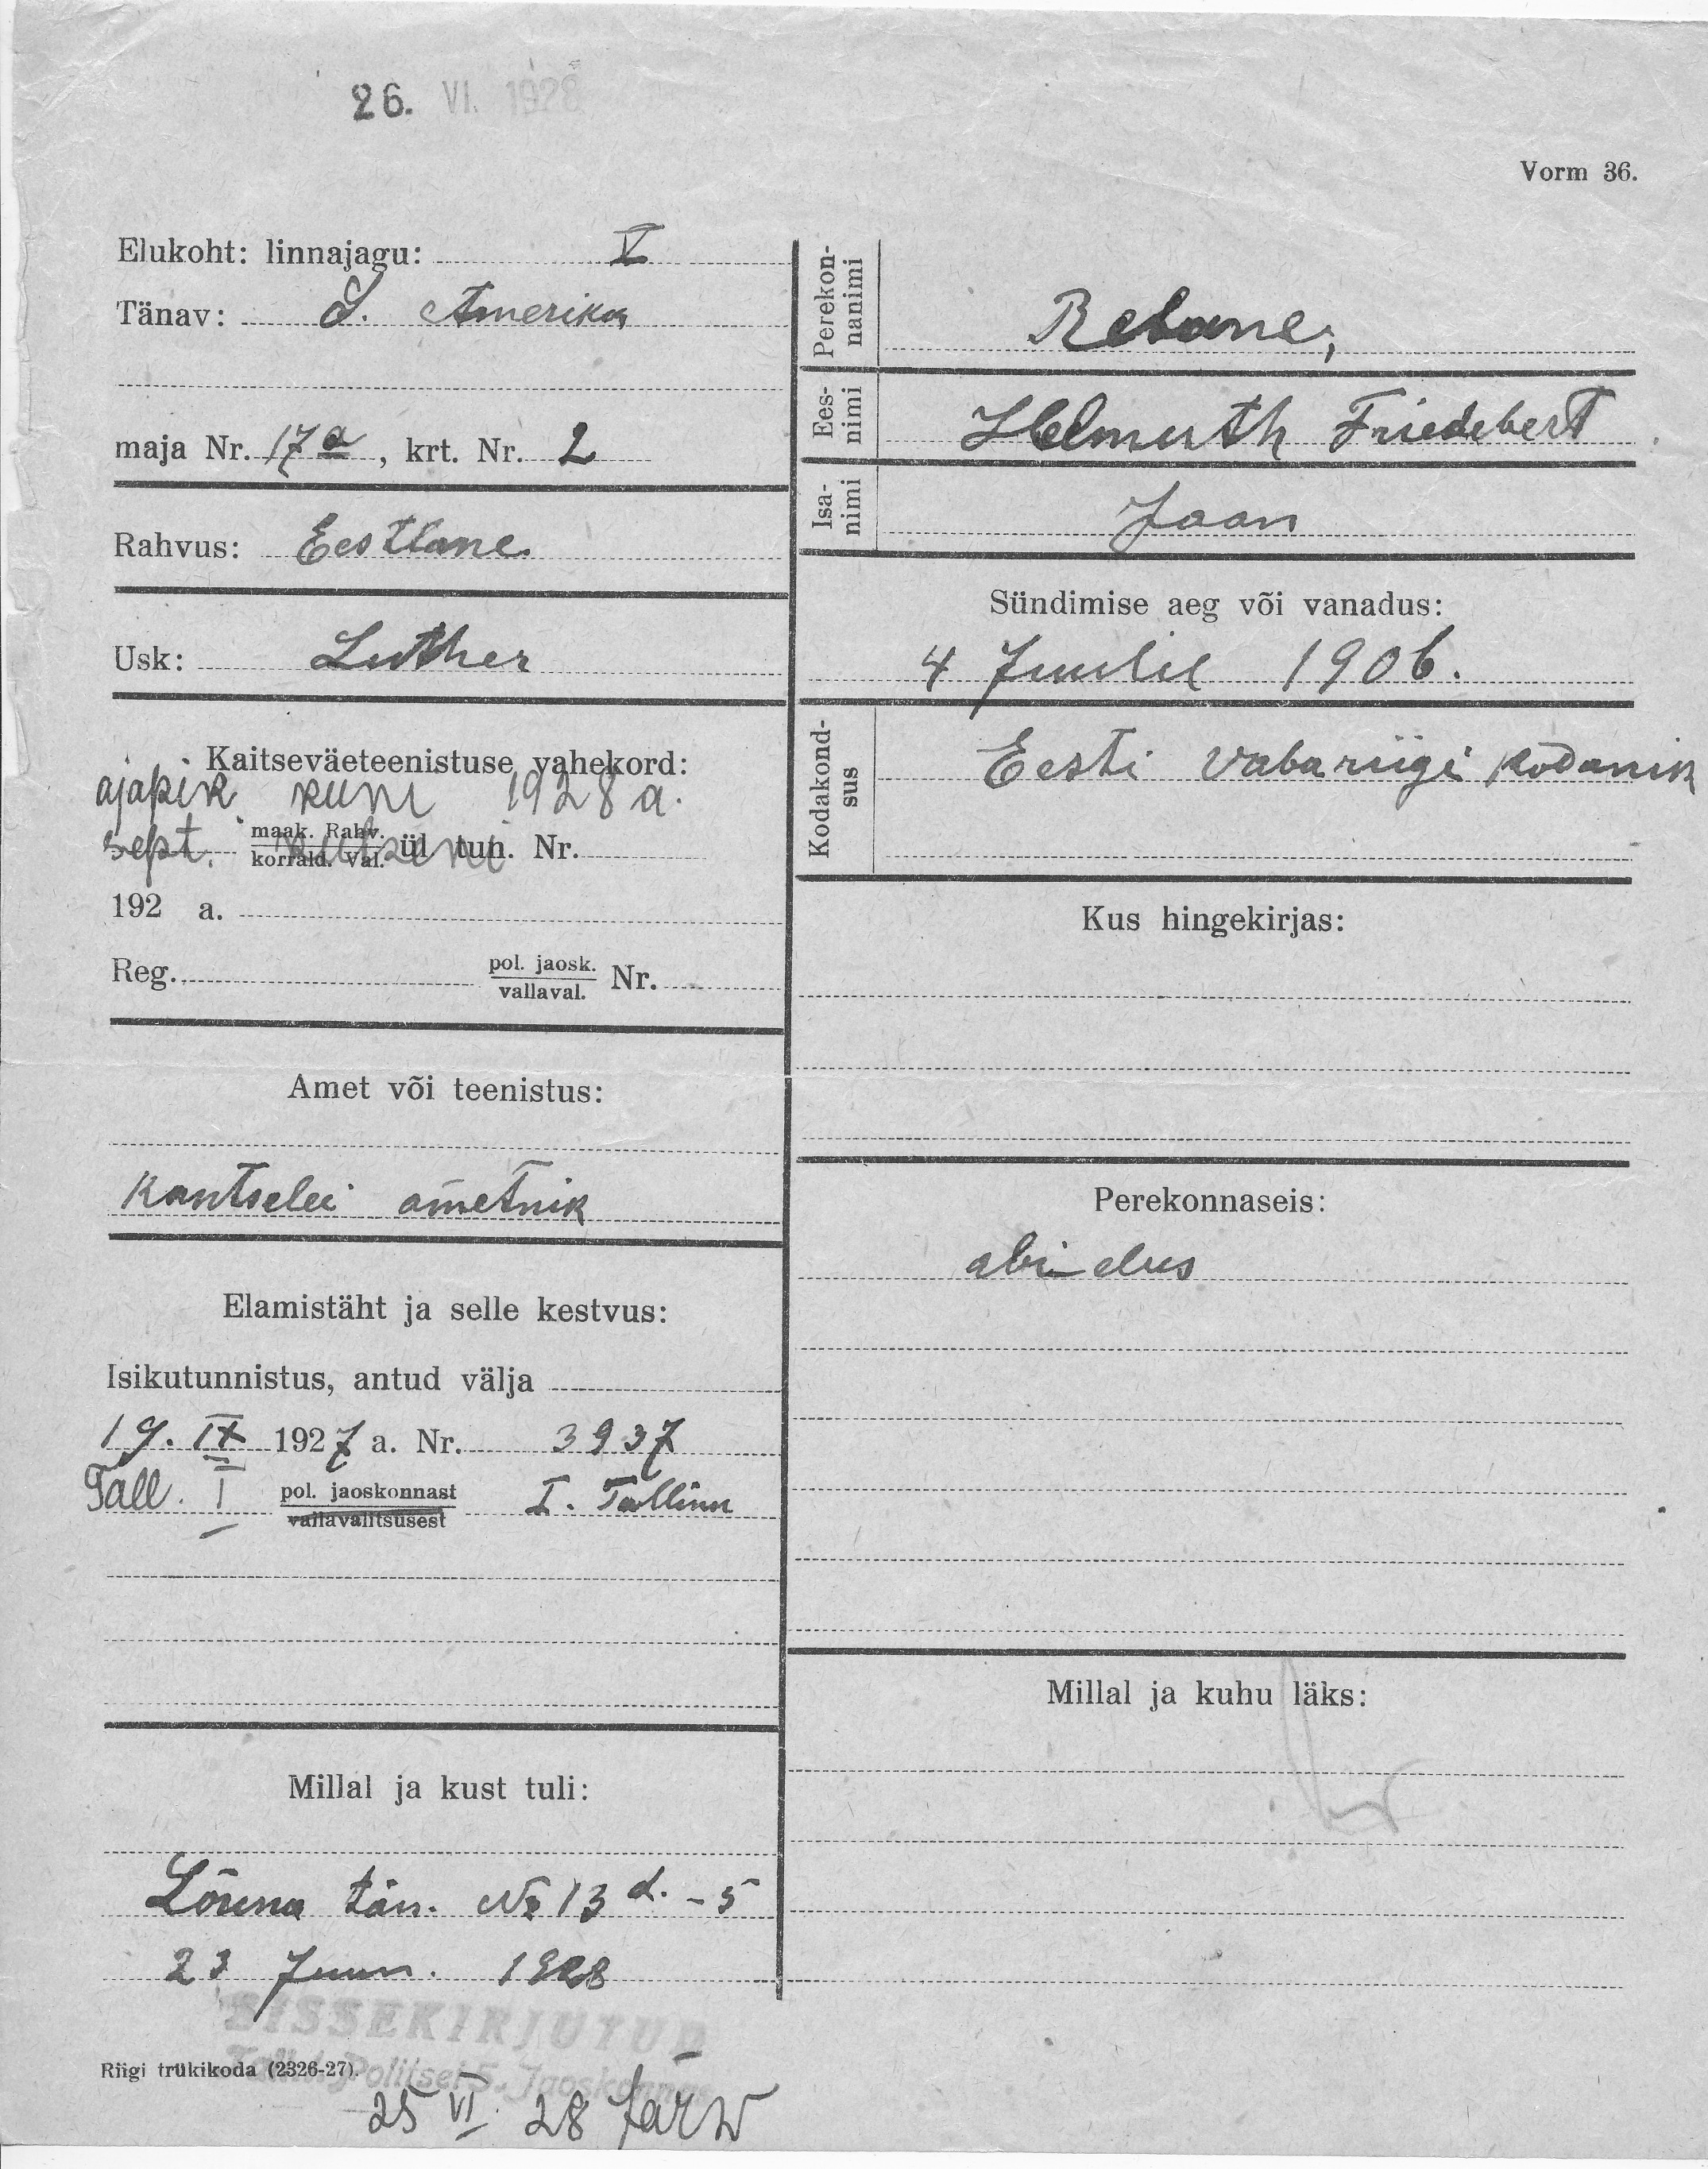 26. VI. 1928
Vorm 36.
Elukoht: linnajagu: V
Tänav: S. Amerika
maja Nr. 17a, krt. Nr. 2
Rahvus: Eestlane
Usk: Luther
Kaitseväeteenistuse vahekord:
ajapik kuni 1928 a.
sept.
maak. Rahv.
korrald. Val. ül tun. Nr.
192 a.
Reg. pol. jaosk.
vallaval. Nr.
Amet või teenistus:
Kantselei ametnik
Elamistäht ja selle kestvus:
Isikutunnistus, antud välja
19. IX 1927 a. Nr. 3937
Tall. I pol. jaoskonnast I. Tallinn
vallavalitsusest
Millal ja kust tuli:
Lõuna tän. № 13 d. - 5
23 Juun. 1928
SISSEKIRJUTUD
Tall. Politsei 5. Jaoskonnas
Riigi trükikoda (2326-27).
25 VI 28 Järw
Perekon-
nanimi
Rebane,
Ees-
nimi
Helmuth Friedebert
Isa-
nimi
Jaan
Sündimise aeg või vanadus:
4 Juulil 1906.
Kodakond-
sus
Eesti vabariigi kodanik
Kus hingekirjas:
Perekonnaseis:
abielus
Millal ja kuhu läks: